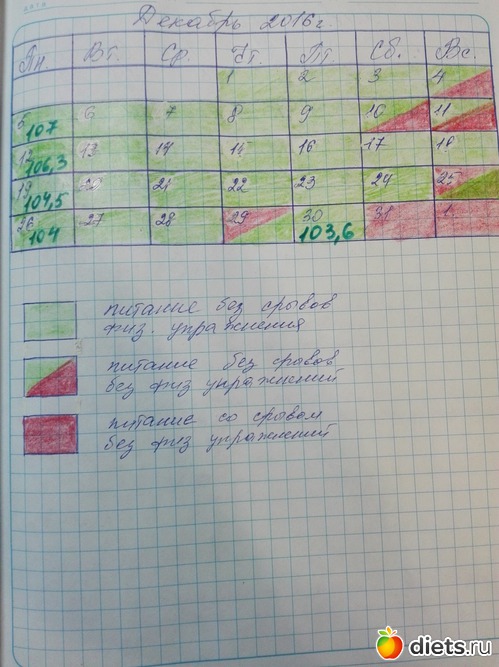 Декабрь 2016г
Пн. Вт. Ср. Чт. Пт. Сб. Вс.
1 2 3 4
5 107 6 7 8 9 10 11
12 106,3 13 14 15 16 17 18
19 104,5 20 21 22 23 24 25
26 104 27 28 29 30 103,6 31 1
питание без срывов
физ. упражнения
питание без срывов
без физ упражнений
питание со срывом
без физ упражнений
diets.ru